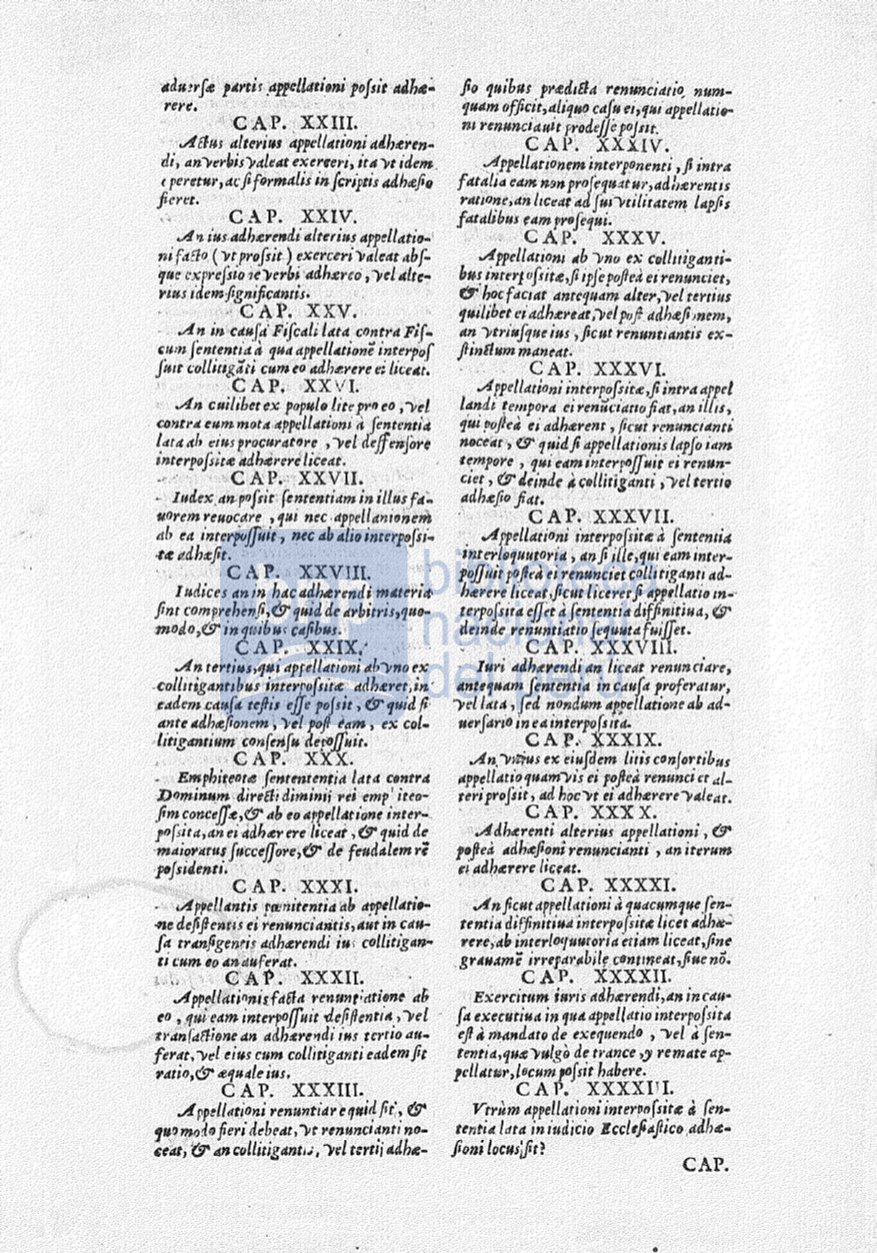 aduersæ partis appellationi possit adhæ-
rere.
CAP. XXIII.
Actus alterius appellationi adhæren-
di, an verbis valeat exerceri, ita vt idem
operetur, ac si formalis in scriptis adhæsio
fieret.
CAP. XXIV.
An ius adhærendi alterius appellatio-
ni facto (vt prossit) exerceri valeat abs-
que expressione verbi adhæreo, vel alte-
rius idem significantis.
CAP. XXV.
An in causa Fiscali lata contra Fis-
cum sententia à qua appellationẽ interpos
suit collitigãti cum eo adhærere ei liceat.
CAP. XXVI.
An cuilibet ex populo lite pro eo, vel
contra eum mota appellationi à sententia
lata ab eius procuratore, vel deffensore
interpossitæ adhærere liceat.
CAP. XXVII.
Iudex an possit sententiam in illus fa-
uorem reuocare, qui nec appellanionem
ab ea interpossuit, nec ab alio interpossi-
tæ adhæsit.
CAP. XXVIII.
Iudices an in hac adhærendi materia
sint comprehensi, & quid de arbitris, quo-
modo, & in quibus casibus.
CAP. XXIX.
An tertius, qui appellationi ab vno ex
collitigantibus interpossitæ adhæret, in
eadem causa testis esse possit, & quid si
ante adhæsionem, vel post eam, ex col-
litigantium consensu depossuit.
CAP. XXX.
Emphiteotæ senstententia lata contra
Dominum directi diminij rei emphiteo-
sim concessæ, & ab eo appellatione inter-
possita, an ei adhærere liceat, & quid de
maioratus successore, & de feudalem rẽ
possidenti.
CAP. XXXI.
Appellantis pœnitentia ab appellatio-
ne desistentis ei renunciantis, aut in cau-
sa transigentis adhærendi ius collitigan-
ti cum eo an auferat.
CAP. XXXII.
Appellationis facta renuntiatione ab
eo, qui eam interpossuit desistentia, vel
transactione an adhærendi ius tertio au-
ferat, vel eius cum collitiganti eadem sit
ratio, & æquale ius.
CAP. XXXIII.
Appellationi renuntiare quid sit, &
quomodo fieri debeat, vt renuncianti no-
ceat, & an collitigantis, vel tertij adhæ-
sio quibus prædicta renunciatio num-
quam officit, aliquo casu ei, qui appellatio-
ni renunciauit prodesse possit.
CAP. XXXIV.
Appellationem interponenti, si intra
fatalia eam non prosequatur, adhærentis
ratione, an liceat ad sui vtilitatem lapsis
fatalibus eam prosequi.
CAP. XXXV.
Appellationi ab vno ex collitiganti-
bus interpossitæ, si ipse posteà ei renunciet,
& hoc faciat antequam alter, vel tertius
quilibet ei adhæreat, vel post adhæsionem,
an vtriusque ius, sicut renuntiantis ex-
stinctum maneat.
CAP. XXXVI.
Appellationi interpossitæ, si intra appel
landi tempora ei renũciatio fiat, an illis,
qui posteà ei adhærent, sicut renuncianti
noceat, & quid si appellationis lapso iam
tempore, qui eam interpossuit ei renun-
ciet, & deinde à collitiganti, vel tertio
adhæsio fiat.
CAP. XXXVII.
Appellationi interpossitæ à sententia
interloquutoria, an si ille, qui eam inter-
possuit posteà ei renunciet collitiganti ad-
hærere liceat, sicut liceret si appellatio in-
terpossita esset à sententia diffinitiua, &
deinde renuntiatio sequuta fuisset.
CAP. XXXVIII.
Iuri adhærendi an liceat renunciare,
antequam sententia in causa proferatur,
vel lata, sed nondum appellatione ab ad-
uersario in ea interpossita.
CAP. XXXIX.
An, vnus ex eiusdem litis consortibus
appellatio quamvis ei posteà renunciet al-
teri prossit, ad hoc vt ei adhærere valeat.
CAP. XXXX.
Adhærenti alterius appellationi, &
posteà adhæsioni renuncianti, an iterum
ei adhærere liceat.
CAP. XXXXI.
An sicut appellationi à quacumque sen-
tentia diffinitiua interpossitæ licet adhæ-
rere, ab interloquutoria etiam liceat, sine
grauamẽ irreparabile contineat, siue nõ.
CAP. XXXXII.
Exercitum iuris adhærendi, an in cau-
sa executiua in qua appellatio interpossita
est à mandato de exequendo, vel à sen-
tentia, quæ vulgò de trance, y remate ap-
pellatur, locum possit habere.
CAP. XXXXIII.
Vtrùm appellationi interpossitæ à sen-
tentia lata in iudicio Ecclesiastico adhæ-
sioni locus sit?
CAP.
BNP
biblioteca
nacional
del perú